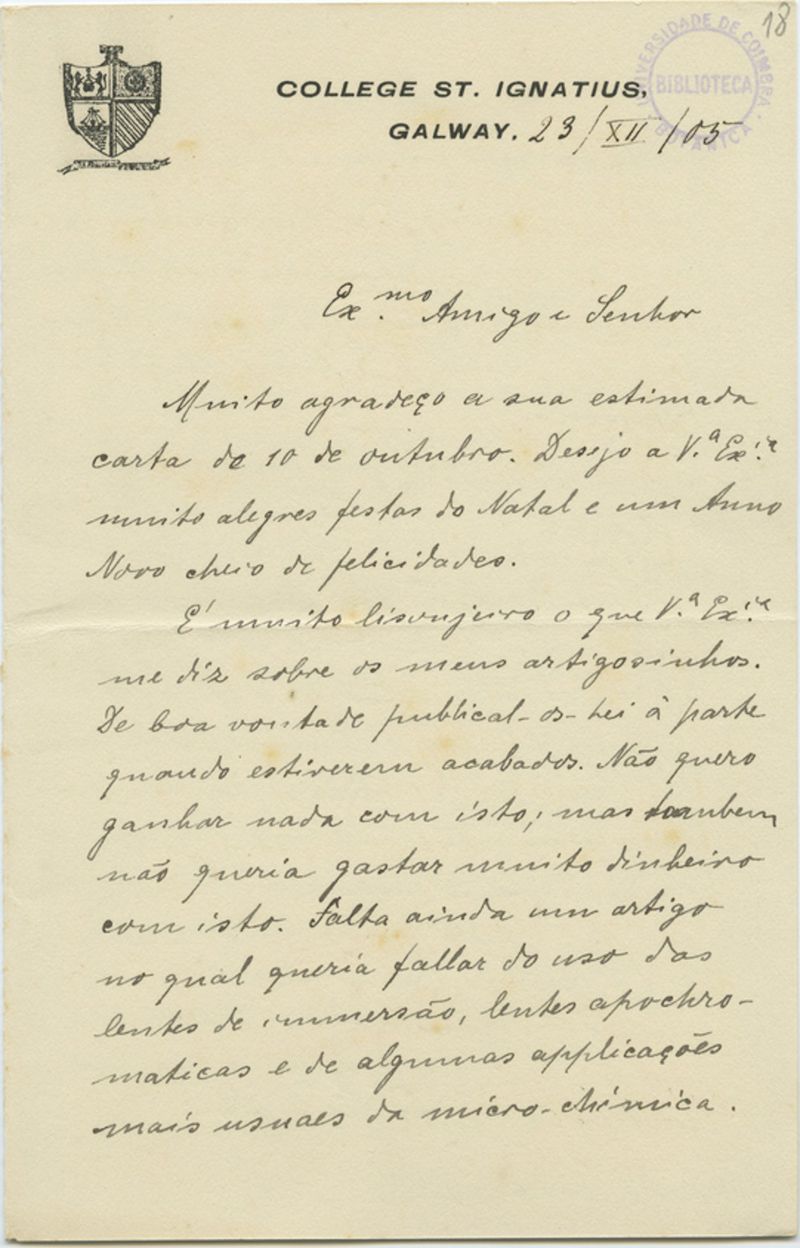 18
UNIVERSIDADE DE COIMBRA
BIBLIOTECA
BOTANICA
COLLEGE ST. IGNATIUS,
GALWAY. 23/XII/05
Ex.mo Amigo e Senhor
Muito agradeço a sua estimada
carta de 10 de outubro. Desejo a V.ª Ex.ª
muito alegres festas do Natal e um Anno
Novo cheio de felicidades.
É muito lisonjeiro o que V.ª Ex.ª
me diz sobre os meus artigosinhos.
De boa vontade publical-os-hei à parte
quando estiverem acabados. Não quero
ganhar nada com isto; mas tambem
não queria gastar muito dinheiro
com isto. Falta ainda um artigo
no qual queria fallar do uso das
lentes de immersão, lentes apochro-
maticas e de algumas applicações
mais usuaes da micro-chimica.